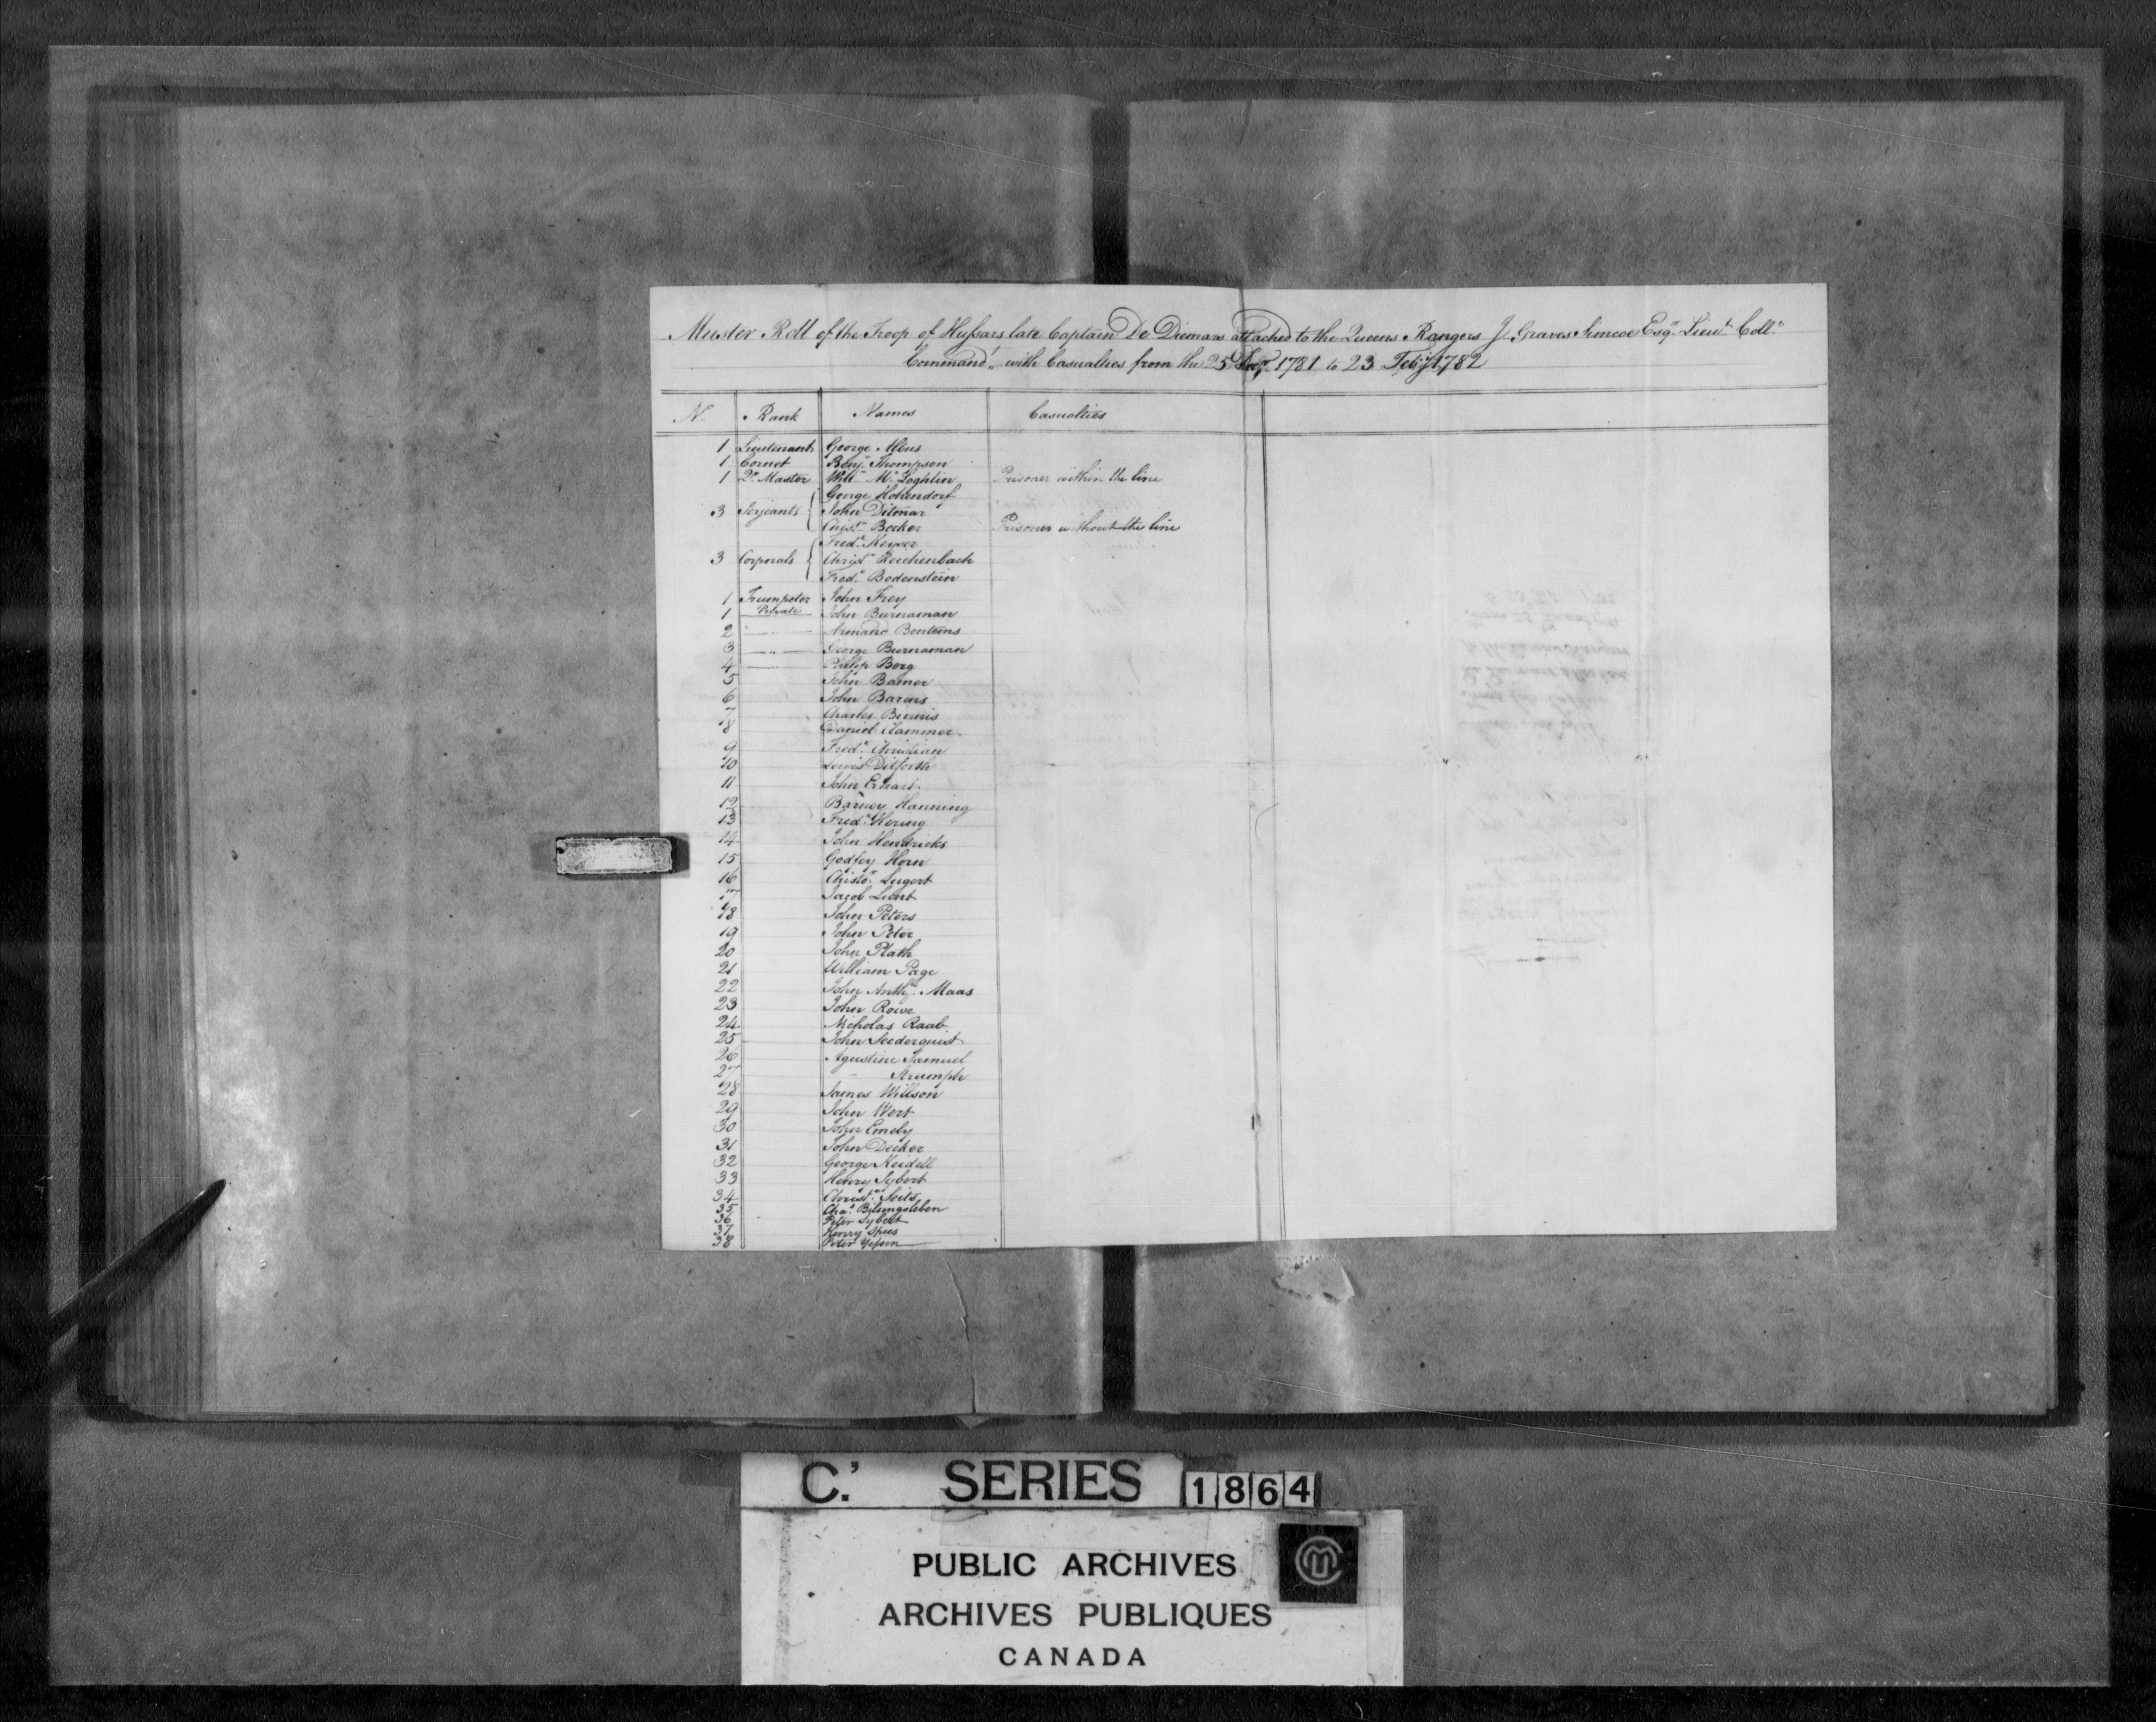 Muster Roll of the Troop of Hussars late Captain De Diemars attached to the Queens Rangers J. Graves Simcoe Esqr. Lieut. Coll.
Command.. with Casualties from the 25 Decr 1781 to 23 Feby 1782
No. Rank Names Casualties
1 Lieutenant George Albus
1 Cornet Benj. Thompson
1 Qr. Master Willm. Mc.Loghlin Prisoner within the line
George Hohendorf
3 Serjeants John Ditmar
Christn. Becker Prisoner without the line
Fredk. Keyser
3 Corporals Christn. Reichenbach
Fredk. Bodenstein
1 Trumpeter John Frey
1 Private John Burnaman
2 Armand Bontems
3 George Burnaman
4 Philip Berg
5 John Bamer
6 John Barens
7 Charles Binnis
8 Daniel Clammer
9 Fredk. Christian
10 Lewis Ditforth
11 John Erhart
12 Barney Hanning
13 Fredk. Hering
14 John Hendricks
15 Godfey Horn
16 Christor. Lugert
17 Jacob Lient
18 John Peters
19 John Peter
20 John Plath
21 William Page
22 John Anthy. Maas
23 John Rowe
24 Nicholas Raab
25 John Seederquist
26 Agustine Samuel
27 Strumph
28 James Willson
29 John Wert
30 John Emely
31 John Decker
32 George Keidell
33 Henry Sybert
34 Christn. Seits
35 Chas. Bilingsleben
36 Peter Sybert
37 Henry Spies
38 Peter Yessen
C.' SERIES 1864
PUBLIC ARCHIVES
ARCHIVES PUBLIQUES
CANADA